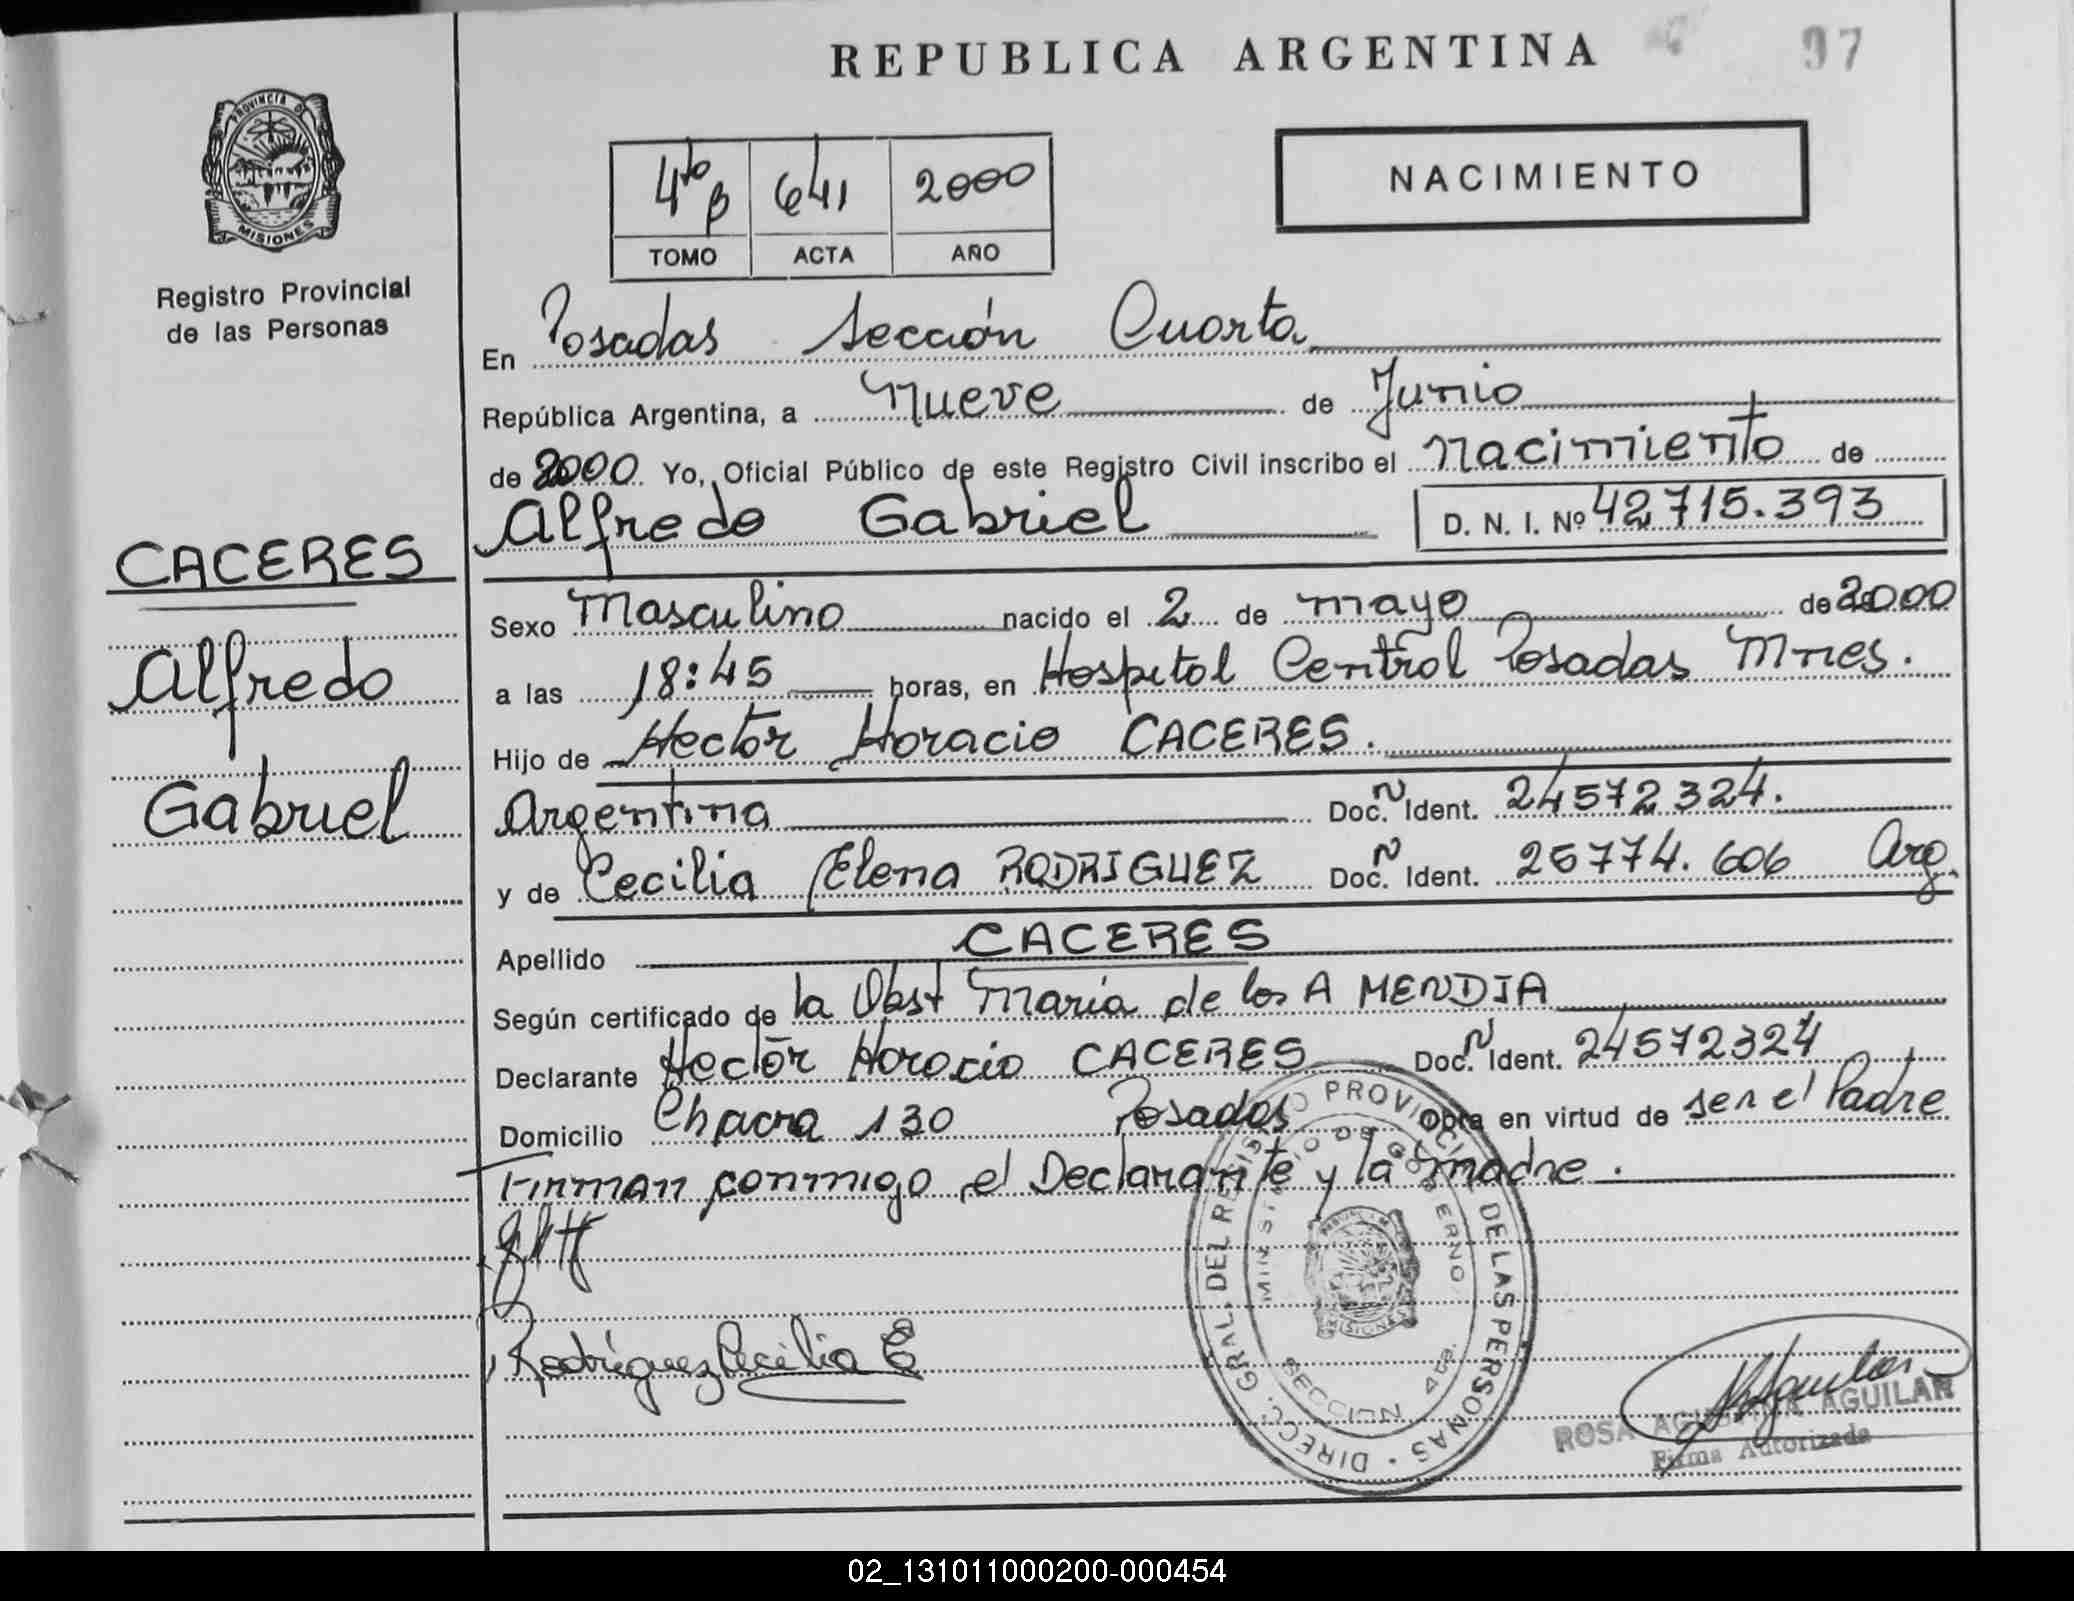 REPUBLICA ARGENTINA
97
PROVINCIA DE
MISIONES
Registro Provincial
de las Personas
4to B 641 2000
TOMO ACTA AÑO
NACIMIENTO
En Posadas Sección Cuarta
República Argentina, a Nueve de Junio
de 2000 Yo, Oficial Público de este Registro Civil inscribo el Nacimiento de
Alfredo Gabriel D. N. I. Nº 42715.393
CACERES
Alfredo
Gabriel
Sexo Masculino nacido el 2 de mayo de 2000
a las 18:45 horas, en Hospital Central Posadas Mnes.
Hijo de Hector Horacio CACERES.
Argentina Doc. N Ident. 24572324.
y de Cecilia Elena RODRIGUEZ Doc. N Ident. 25774.606 Arg.
Apellido CACERES
Según certificado de la Obst Maria de los A MENDIA
Declarante Hector Horacio CACERES Doc. N Ident. 24572324
Domicilio Chacra 130 Posadas Obra en virtud de ser el Padre
Firman conmigo el Declarante y la madre.
Rodríguez Cecilia E
DIRECC. GRAL. DEL REGISTRO PROVINCIAL DE LAS PERSONAS
MINISTERIO DE GOBIERNO
MISIONES
SECCION 4ta.
ROSA AGUILAR
Firma Autorizada
02_131011000200-000454